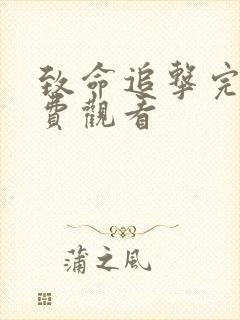 致命追擊完
費觀看
蒲之風